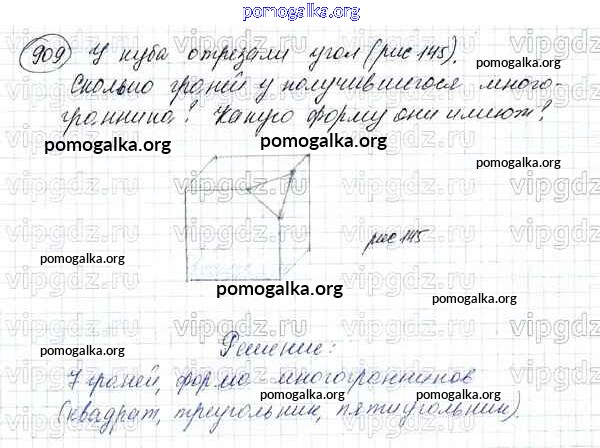 pomogalka.org
909 У куба отрезали угол (рис 145).
Сколько граней у получившегося много-
гранника? Какую форму они имеют?
pomogalka.org pomogalka.org
pomogalka.org
pomogalka.org
рис 145
pomogalka.org
pomogalka.org
pomogalka.org
pomogalka.org
Решение:
pomogalka.org
7 граней, форма многогранников
(квадрат, треугольник, пятиугольник).
pomogalka.org